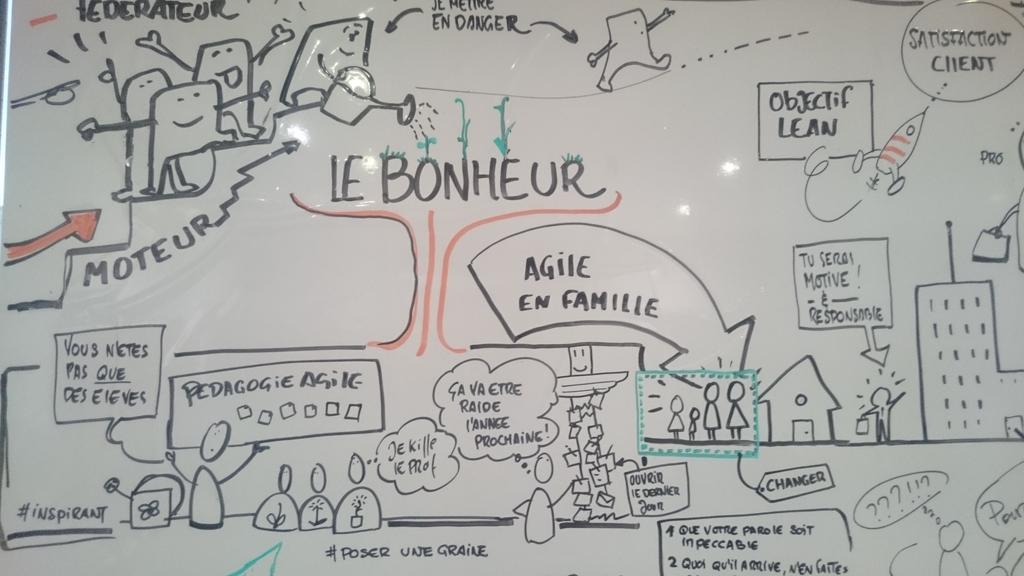 FÉDÉRATEUR
JE METTRE
EN DANGER
SATISFACTION
CLIENT
OBJECTIF
LEAN
PRO
LE BONHEUR
MOTEUR
AGILE
EN FAMILLE
TU SERAI
MOTIVÉ !
&
RESPONSABLE
VOUS N'ETES
PAS QUE
DES ELEVES
PEDAGOGIE AGILE
ÇA VA ETRE
RAIDE
L'ANNEE
PROCHAINE!
JE KIFFE
LE PROF
OUVRIR
LE DERNIER
JOUR
CHANGER
#INSPIRANT
#POSER UNE GRAINE
1 QUE VOTRE PAROLE SOIT
IMPECCABLE
2 QUOI QU'IL ARRIVE, N'EN FAITES
???!!?